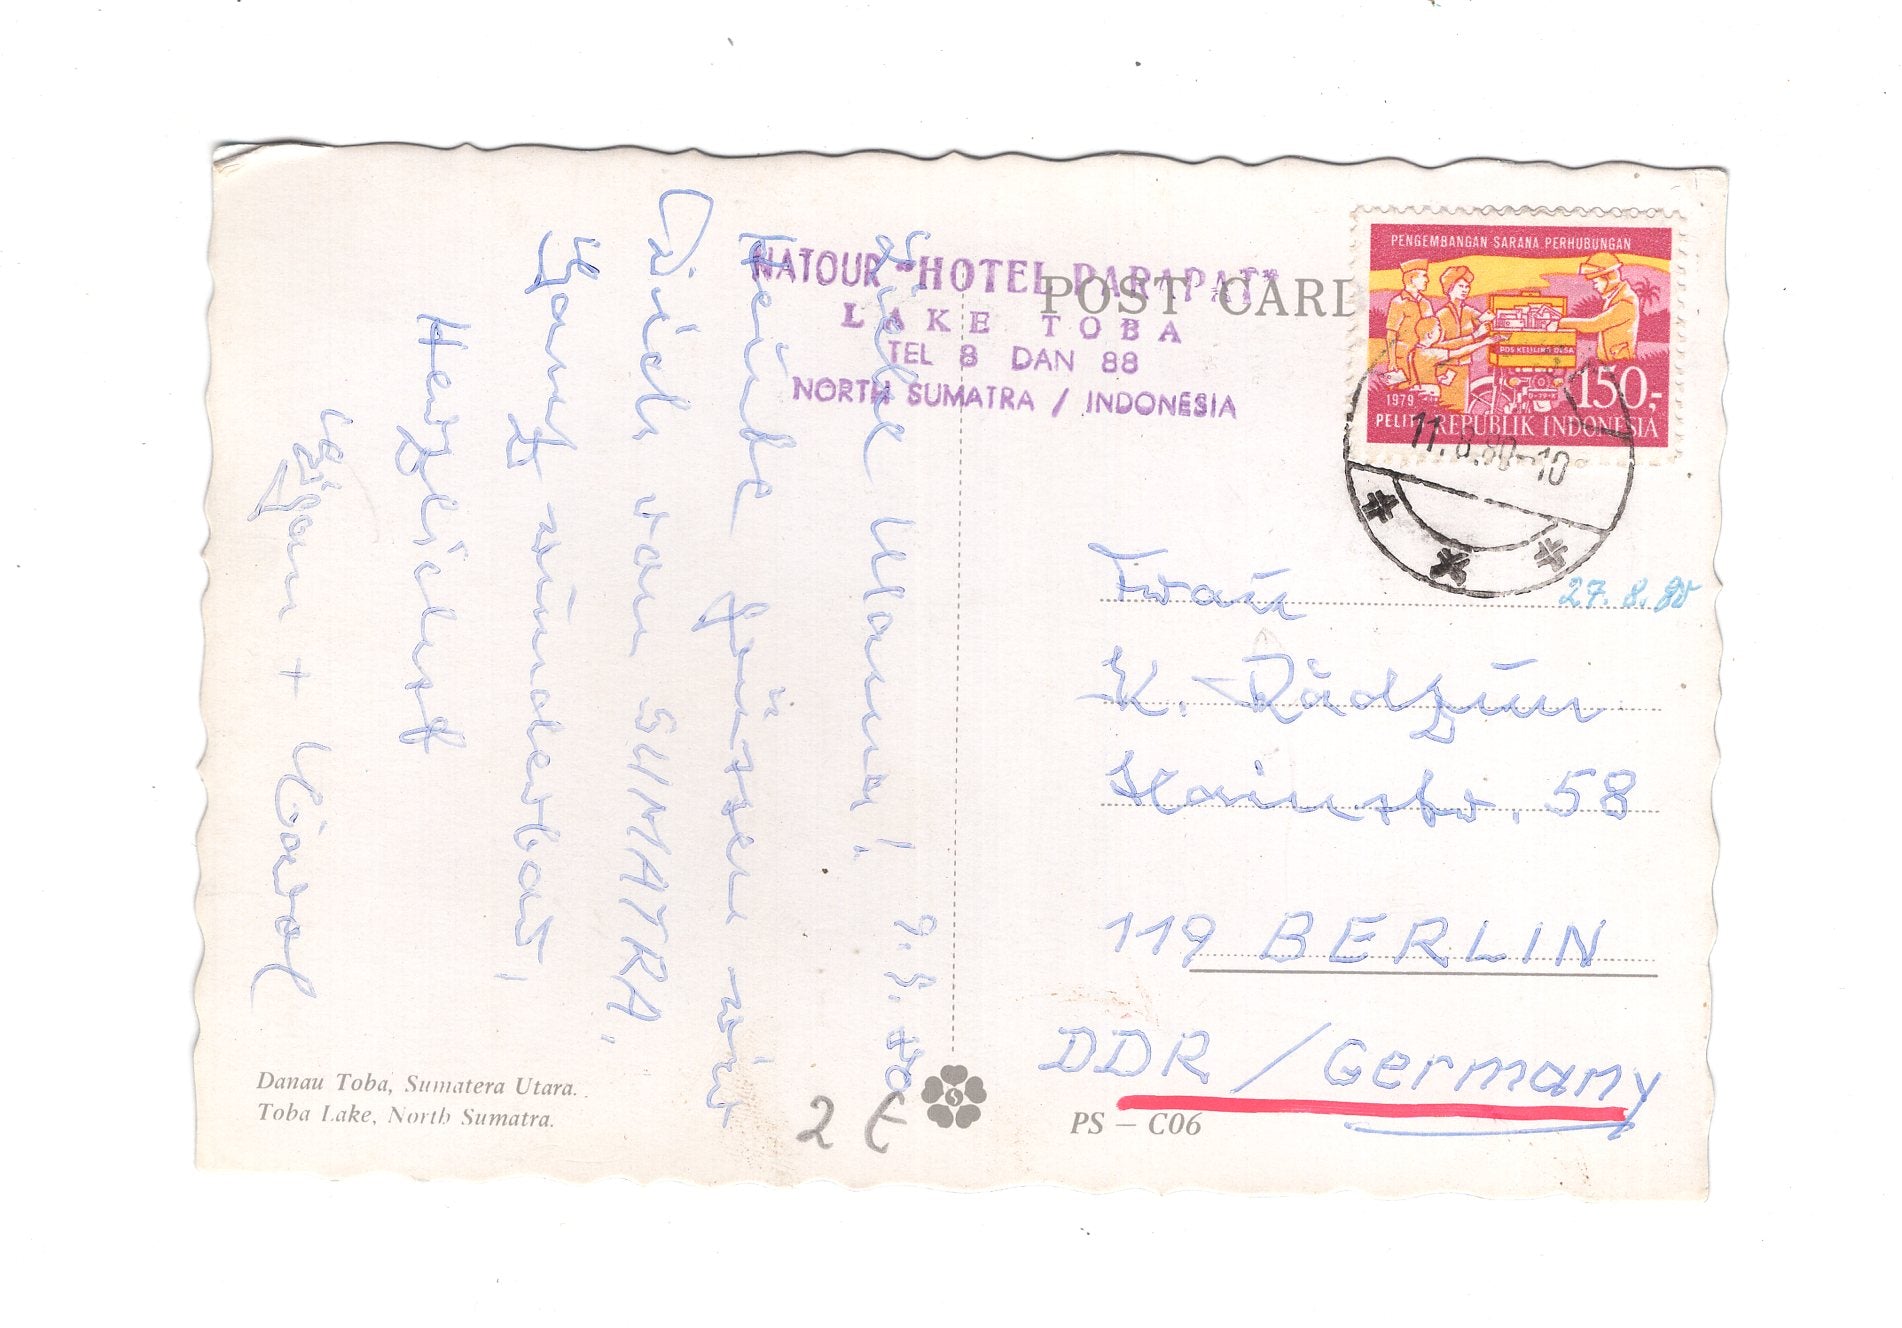 NATOUR "HOTEL PARAPAT"
LAKE TOBA
TEL 8 DAN 88
NORTH SUMATRA / INDONESIA
POST CARD
PENGEMBANGAN SARANA PERHUBUNGAN
POS KELILING DESA
1979
150,-
PELITA REPUBLIK INDONESIA
11.8.80-10
9.8.80
Liebe Mama!
Heute grüssen wir
Dich von SUMATRA.
Ganz wunderbar,
Herzlichst
+ Carol
27.8.80
Frau
K. Rädzun
Hainstr. 58
119 BERLIN
DDR / Germany
Danau Toba, Sumatera Utara.
Toba Lake, North Sumatra.
2 €
PS – C06